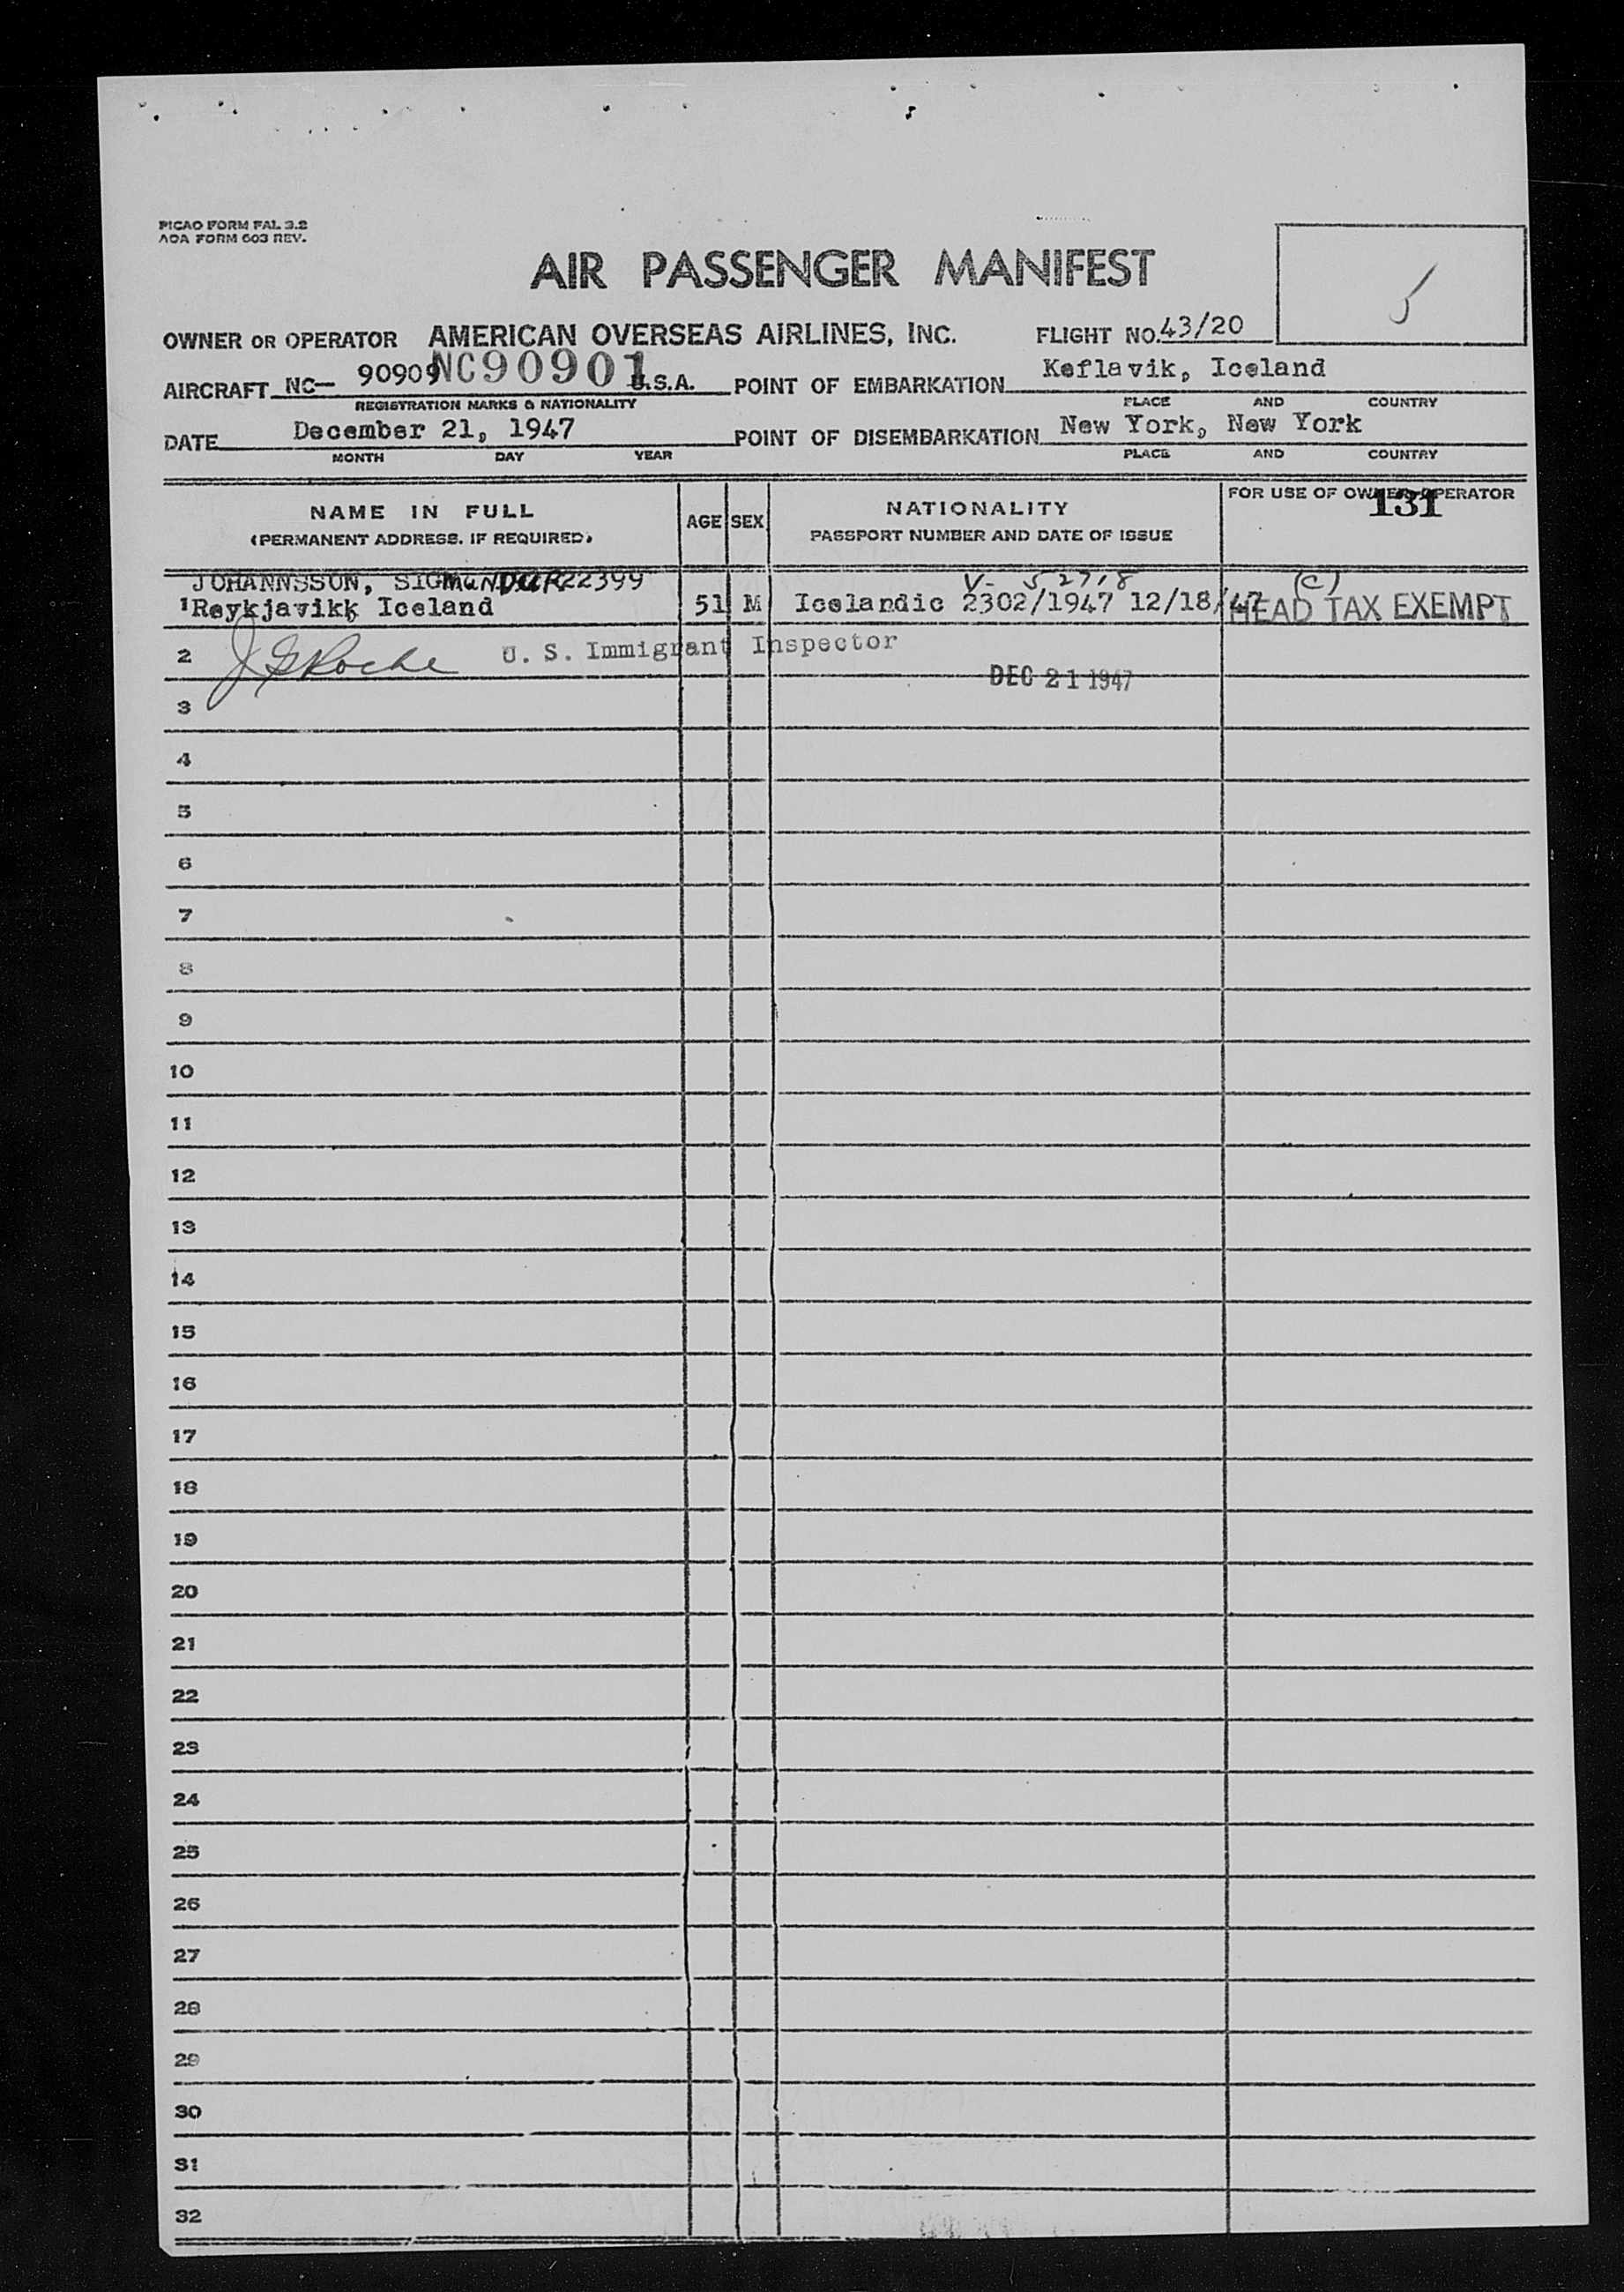 PICAO FORM FAL 3.2
AOA FORM 603 REV.
AIR PASSENGER MANIFEST
OWNER OR OPERATOR AMERICAN OVERSEAS AIRLINES, INC. FLIGHT NO. 43/20
AIRCRAFT NC— 90909 NC90901 U.S.A. POINT OF EMBARKATION Keflavik, Iceland
REGISTRATION MARKS & NATIONALITY PLACE AND COUNTRY
DATE December 21, 1947 POINT OF DISEMBARKATION New York, New York
MONTH DAY YEAR PLACE AND COUNTRY
NAME IN FULL AGE SEX NATIONALITY FOR USE OF OWNER OPERATOR
(PERMANENT ADDRESS. IF REQUIRED) PASSPORT NUMBER AND DATE OF ISSUE 131
JOHANNSSON, SIGMUNDUR 22399 V- 52718 (C)
1 Reykjavikk Iceland 51 M Icelandic 2302/1947 12/18/47 HEAD TAX EXEMPT
2 J G Roche U. S. Immigrant Inspector
DEC 21 1947
3
4
5
6
7
8
9
10
11
12
13
14
15
16
17
18
19
20
21
22
23
24
25
26
27
28
29
30
31
32